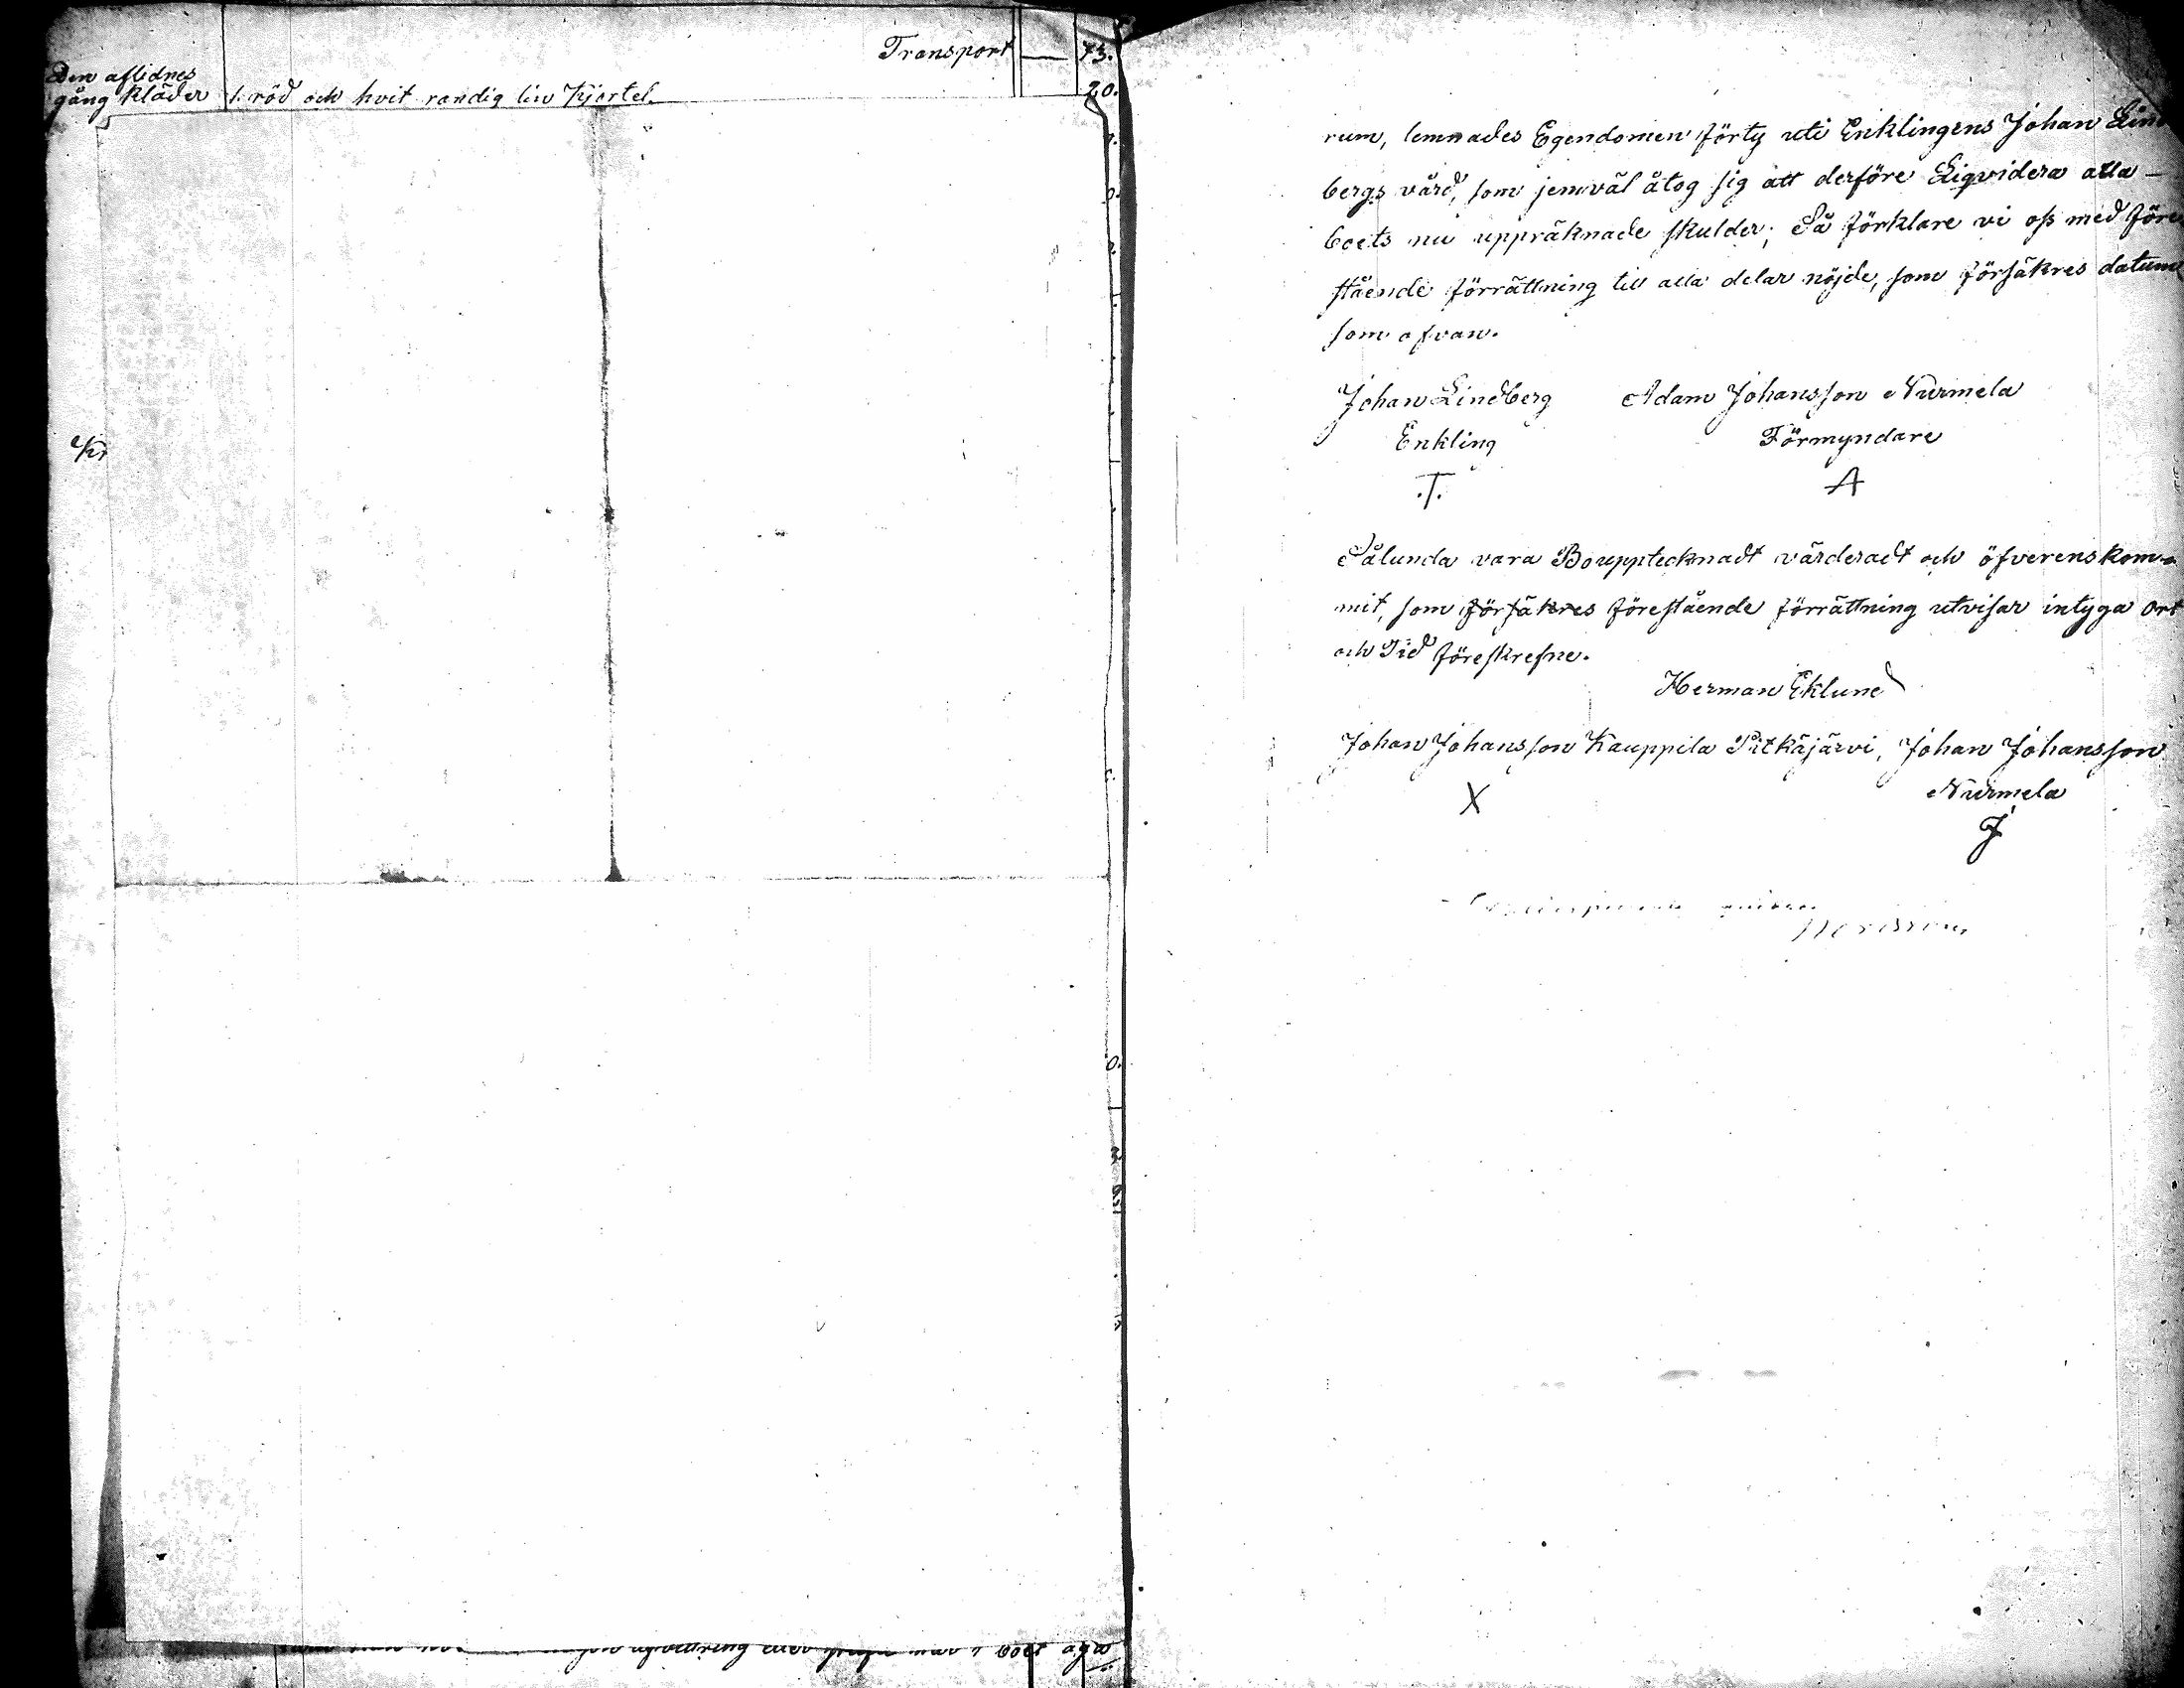 Transport — 73.
Den aflidnes
gång kläder 1. röd och hvit randig lin Kjortel. 20.
rum, lemnades Egendomen förty uti Enklingens Johan Lind
bergs vård, som jemväl åtog sig att derföre Liqvidera alla
boets nu uppräknade skulder; Så förklare vi oss med före
stående förrättning till alla delar nöjde, som försäkres datum
som ofvan.
Johan Lindberg Adam Johansson Nurmela
Enkling Förmyndare
.T. A
Sålunda vara Bouppteknadt värderadt och öfverenskom-
mit, som försäkres förestående förrättning utvisar intyga ort
och Tid föreskrefne.
Herman Eklund
Johan Johansson Kauppila Pitkäjärvi, Johan Johansson
Nurmela
X J